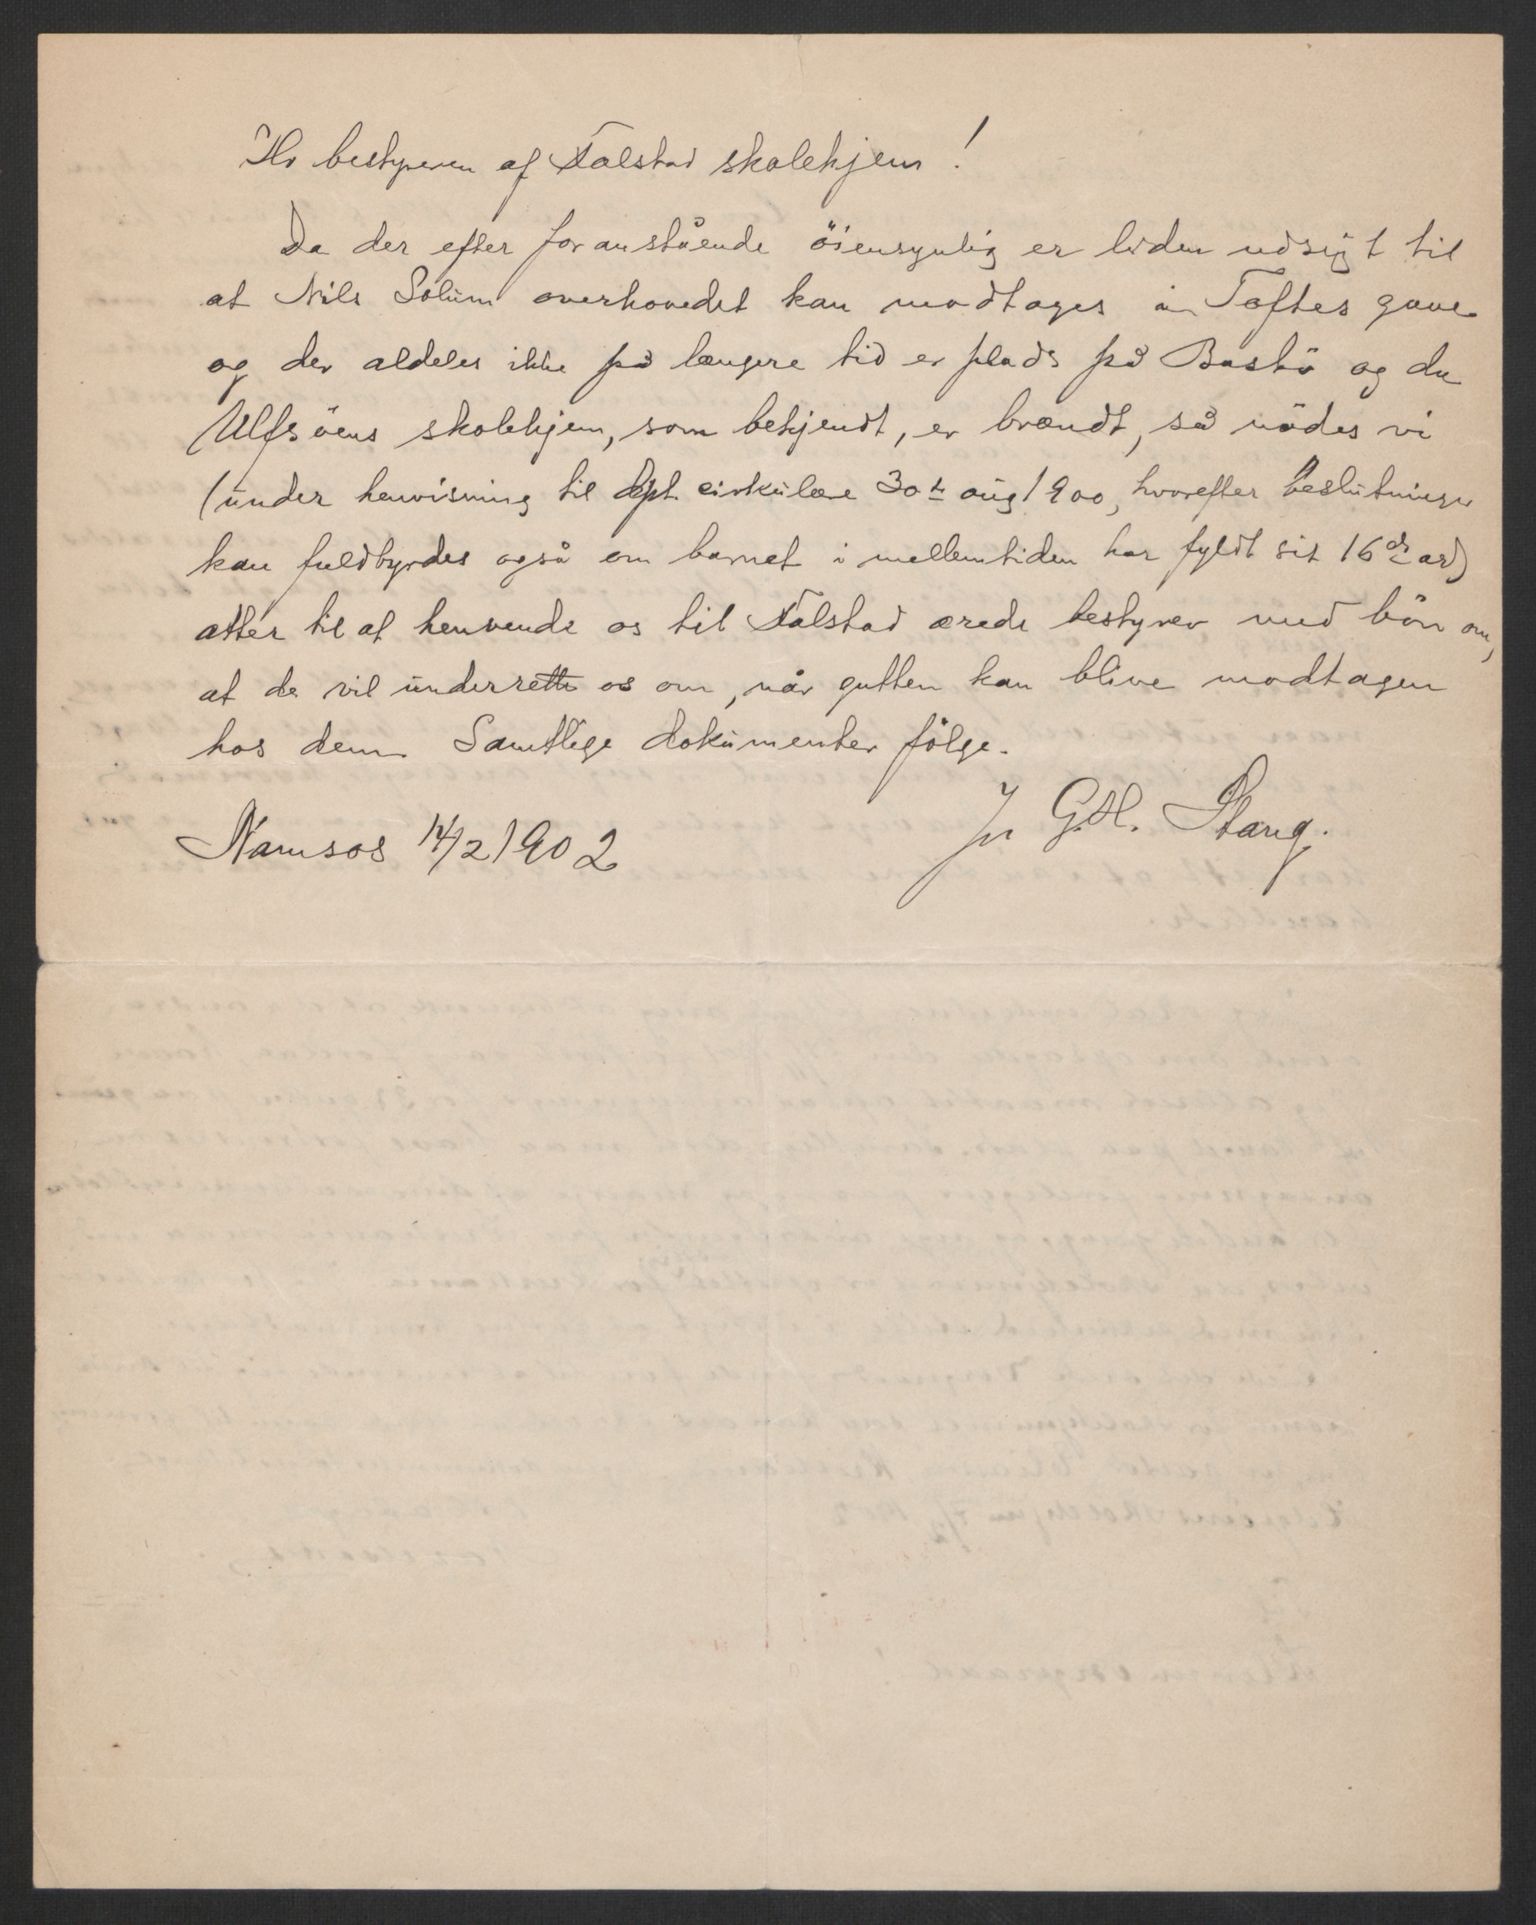 Hr bestyreren af Falstad skolehjem!
Da der efter foranstående öiensynlig er liden udsigt til
at Nils Solum overhovedet kan modtages på Toftes gave
og der aldeles ikke på længere tid er plads på Bastö og da
Ulfsöens skolehjem, som bekjendt, er brændt, så nödes vi
(under henvisning til dept cirkulære 30te aug 1900, hvorefter beslutninger
kan fuldbyrdes også om barnet i mellemtiden har fyldt sit 16de år)
atter til at henvende os til Falstad ærede bestyrer med bön om,
at de vil underrette os om, når gutten kan blive modtagen
hos dem. Samtlige dokumenter fölge.
Namsos 14/2 1902 G.H. Stang.